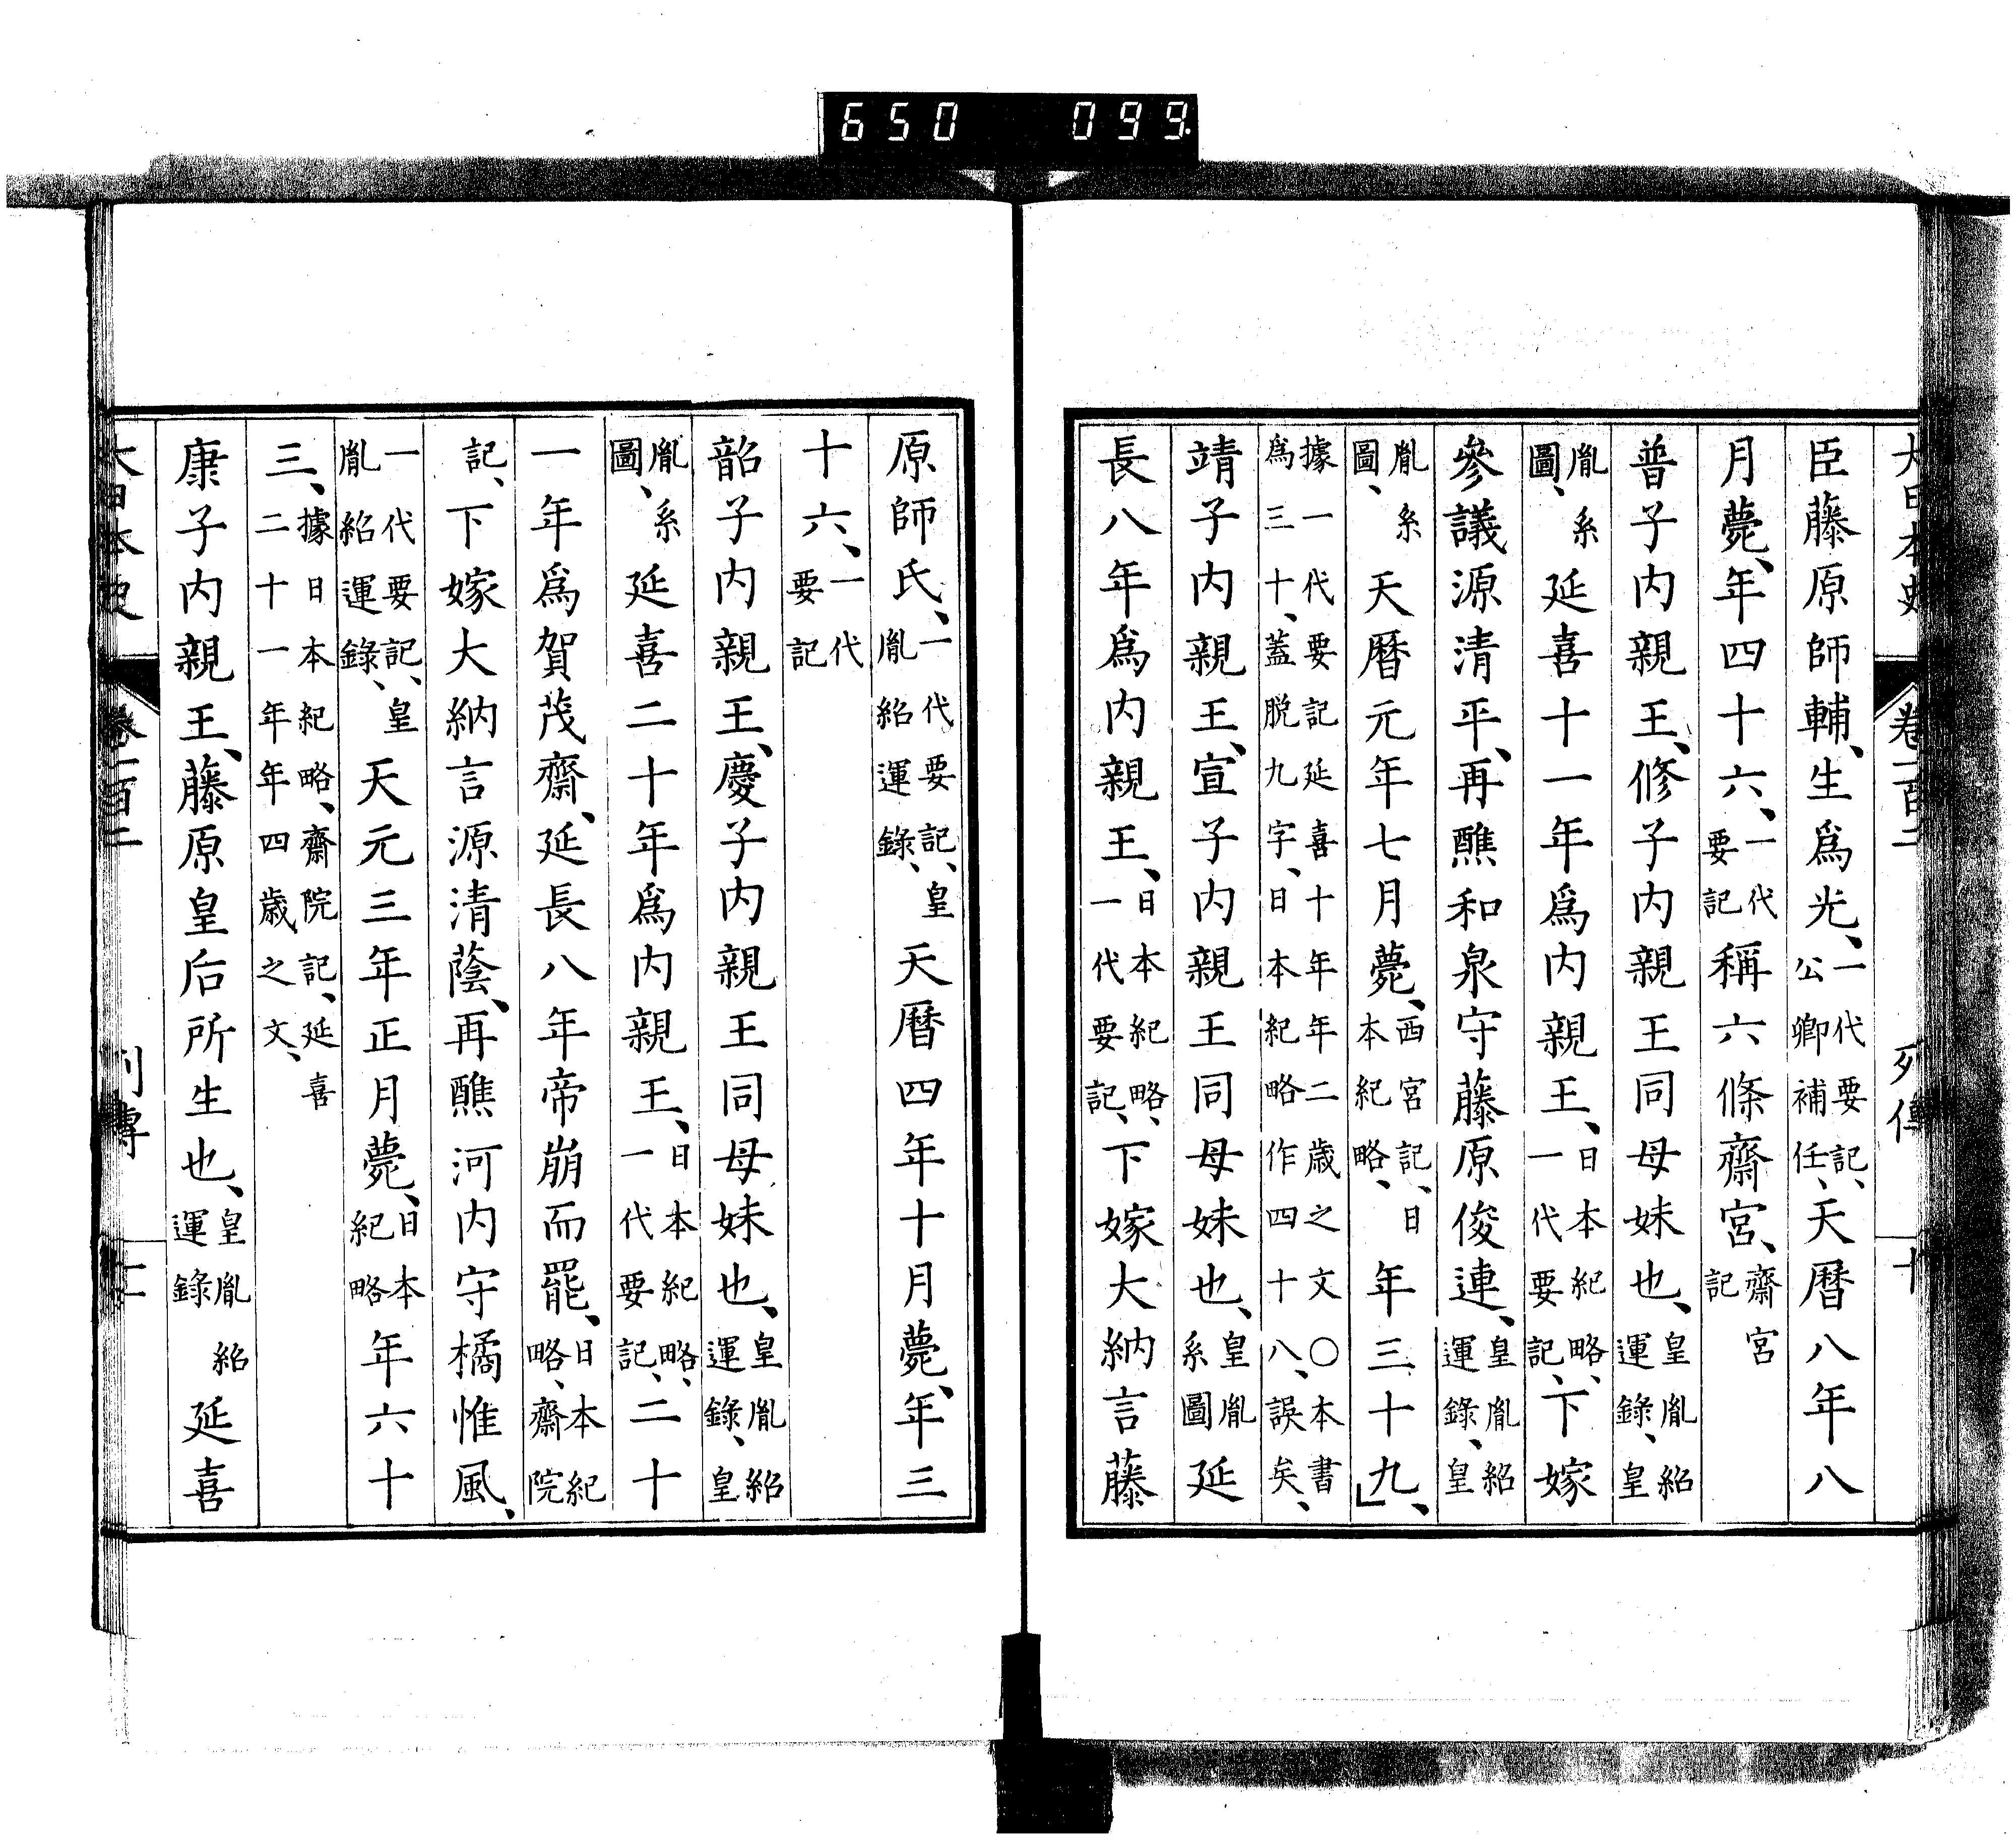 650 099
大日本史 卷一百二 列傳 十
臣藤原師輔、生爲光、一代要記、公卿補任、天曆八年八
月薨、年四十六、一代要記稱六條齋宮、齋宮記
普子内親王、修子内親王同母妹也、皇胤紹運錄、皇
胤系圖、延喜十一年爲内親王、日本紀略、一代要記、下嫁
參議源清平、再醮和泉守藤原俊連、皇胤紹運錄、皇
胤系圖、天曆元年七月薨、西宮記、日本紀略、年三十九、
據一代要記延喜十年年二歲之文○本書爲三十、蓋脱九字、日本紀略作四十八、誤矣、
靖子内親王、宣子内親王同母妹也、皇胤系圖延
長八年爲内親王、日本紀略、一代要記、下嫁大納言藤
原師氏、一代要記、皇胤紹運錄、天曆四年十月薨、年三
十六、一代要記
韶子内親王、慶子内親王同母妹也、皇胤紹運錄、皇
胤系圖、延喜二十年爲内親王、日本紀略、一代要記、二十
一年爲賀茂齋、延長八年帝崩而罷、日本紀略、齋院
記、下嫁大納言源清蔭、再醮河内守橘惟風、
一代要記、皇胤紹運錄、天元三年正月薨、日本紀略年六十
三、據日本紀略、齋院記、延喜二十一年年四歲之文、
康子内親王、藤原皇后所生也、皇胤紹運錄延喜
大日本史 卷一百二 列傳